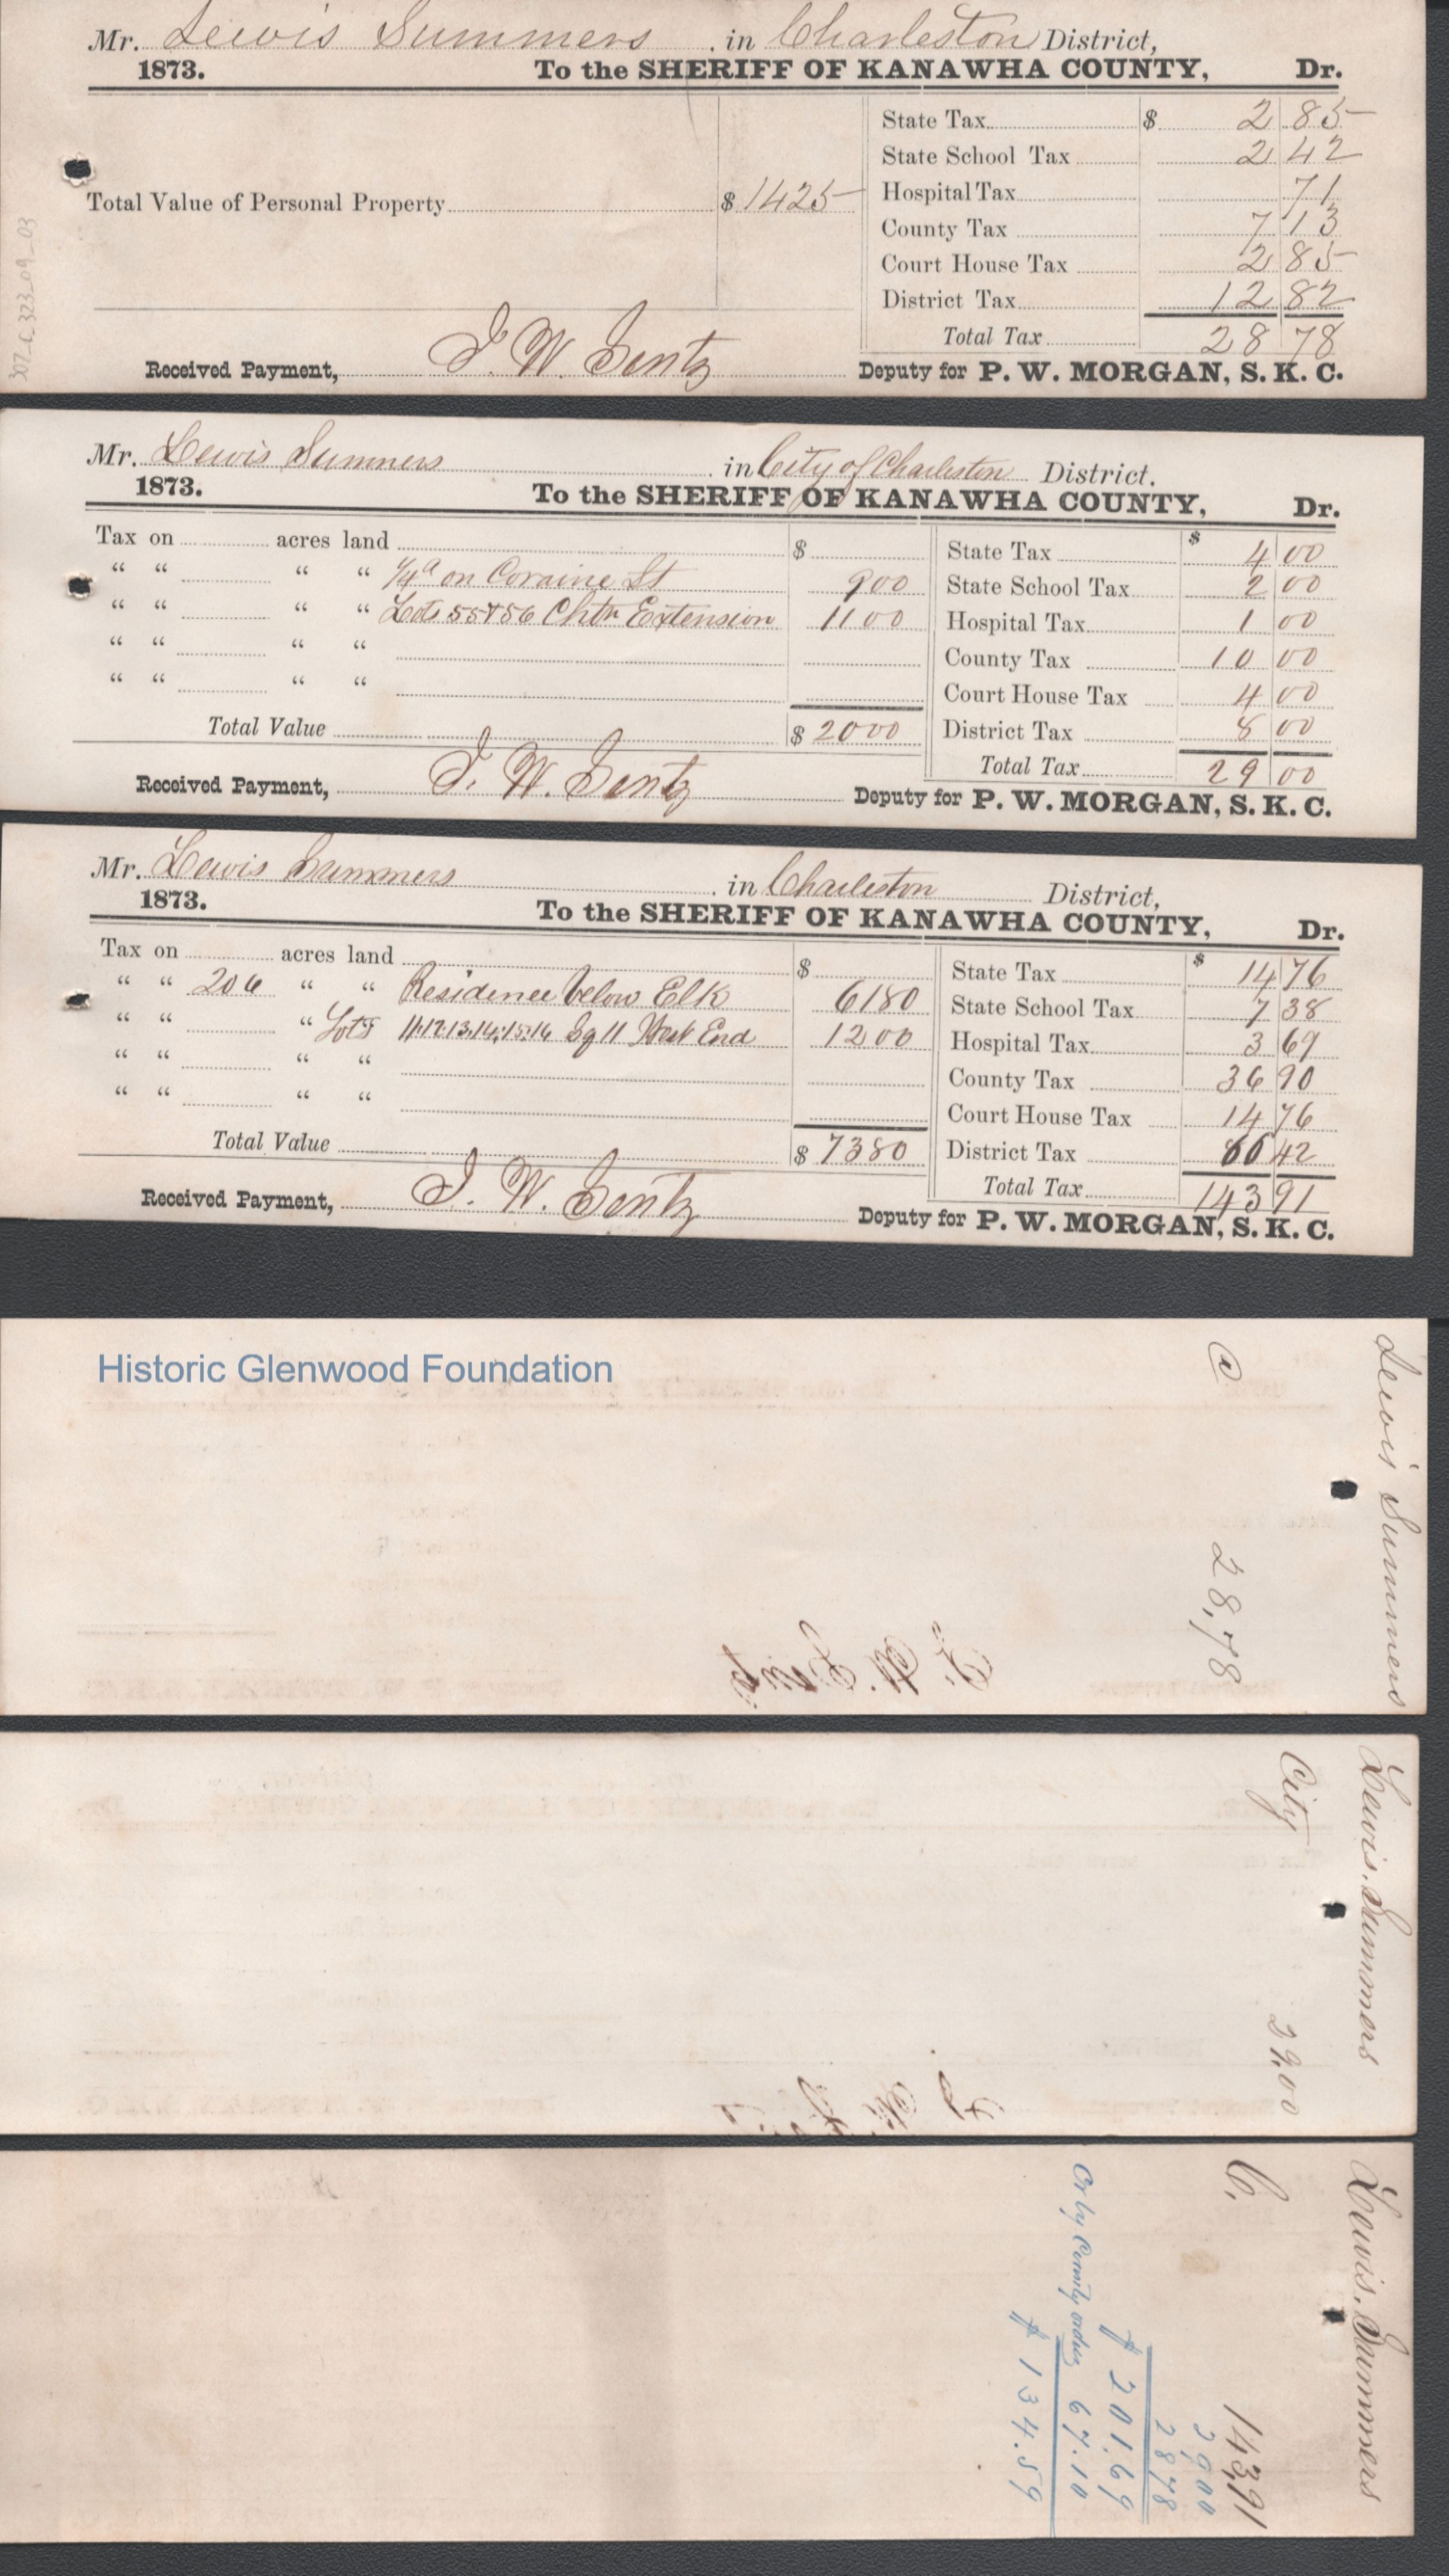 Mr. Lewis Summers, in Charleston District,
1873. To the SHERIFF OF KANAWHA COUNTY, Dr.
State Tax $ 2 85
State School Tax 2 42
Total Value of Personal Property $ 1425 Hospital Tax 71
County Tax 7 13
Court House Tax 2 85
District Tax 12 82
Total Tax 28 78
Received Payment, J. W. Lentz Deputy for P. W. MORGAN, S. K. C.
307_C_323_09_03
Mr. Lewis Summers, in City of Charleston District.
1873. To the SHERIFF OF KANAWHA COUNTY, Dr.
Tax on acres land $ State Tax $ 4 00
" " " " 1/4 a on Coraine St 900 State School Tax 2 00
" " " " Lots 55 & 56 Chtn Extension 1100 Hospital Tax 1 00
" " " " County Tax 10 00
" " " " Court House Tax 4 00
Total Value $ 2000 District Tax 8 00
Total Tax 29 00
Received Payment, J. W. Lentz Deputy for P. W. MORGAN, S. K. C.
Mr. Lewis Summers, in Charleston District,
1873. To the SHERIFF OF KANAWHA COUNTY, Dr.
Tax on acres land $ State Tax $ 14 76
" " 206 " " Residence below Elk 6180 State School Tax 7 38
" " " Lots 11.12.13.14.15.16 Sq 11 West End 1200 Hospital Tax 3 69
" " " " County Tax 36 90
" " " " Court House Tax 14 76
Total Value $ 7380 District Tax 66 42
Total Tax 143 91
Received Payment, J. W. Lentz Deputy for P. W. MORGAN, S. K. C.
Historic Glenwood Foundation
Lewis Summers
@ 28,78
Lewis Summers
City 29.00
Lewis Summers
C. 143,91
29.00
28 78
$ 201.69
Cr by County order 67.10
$ 134.59